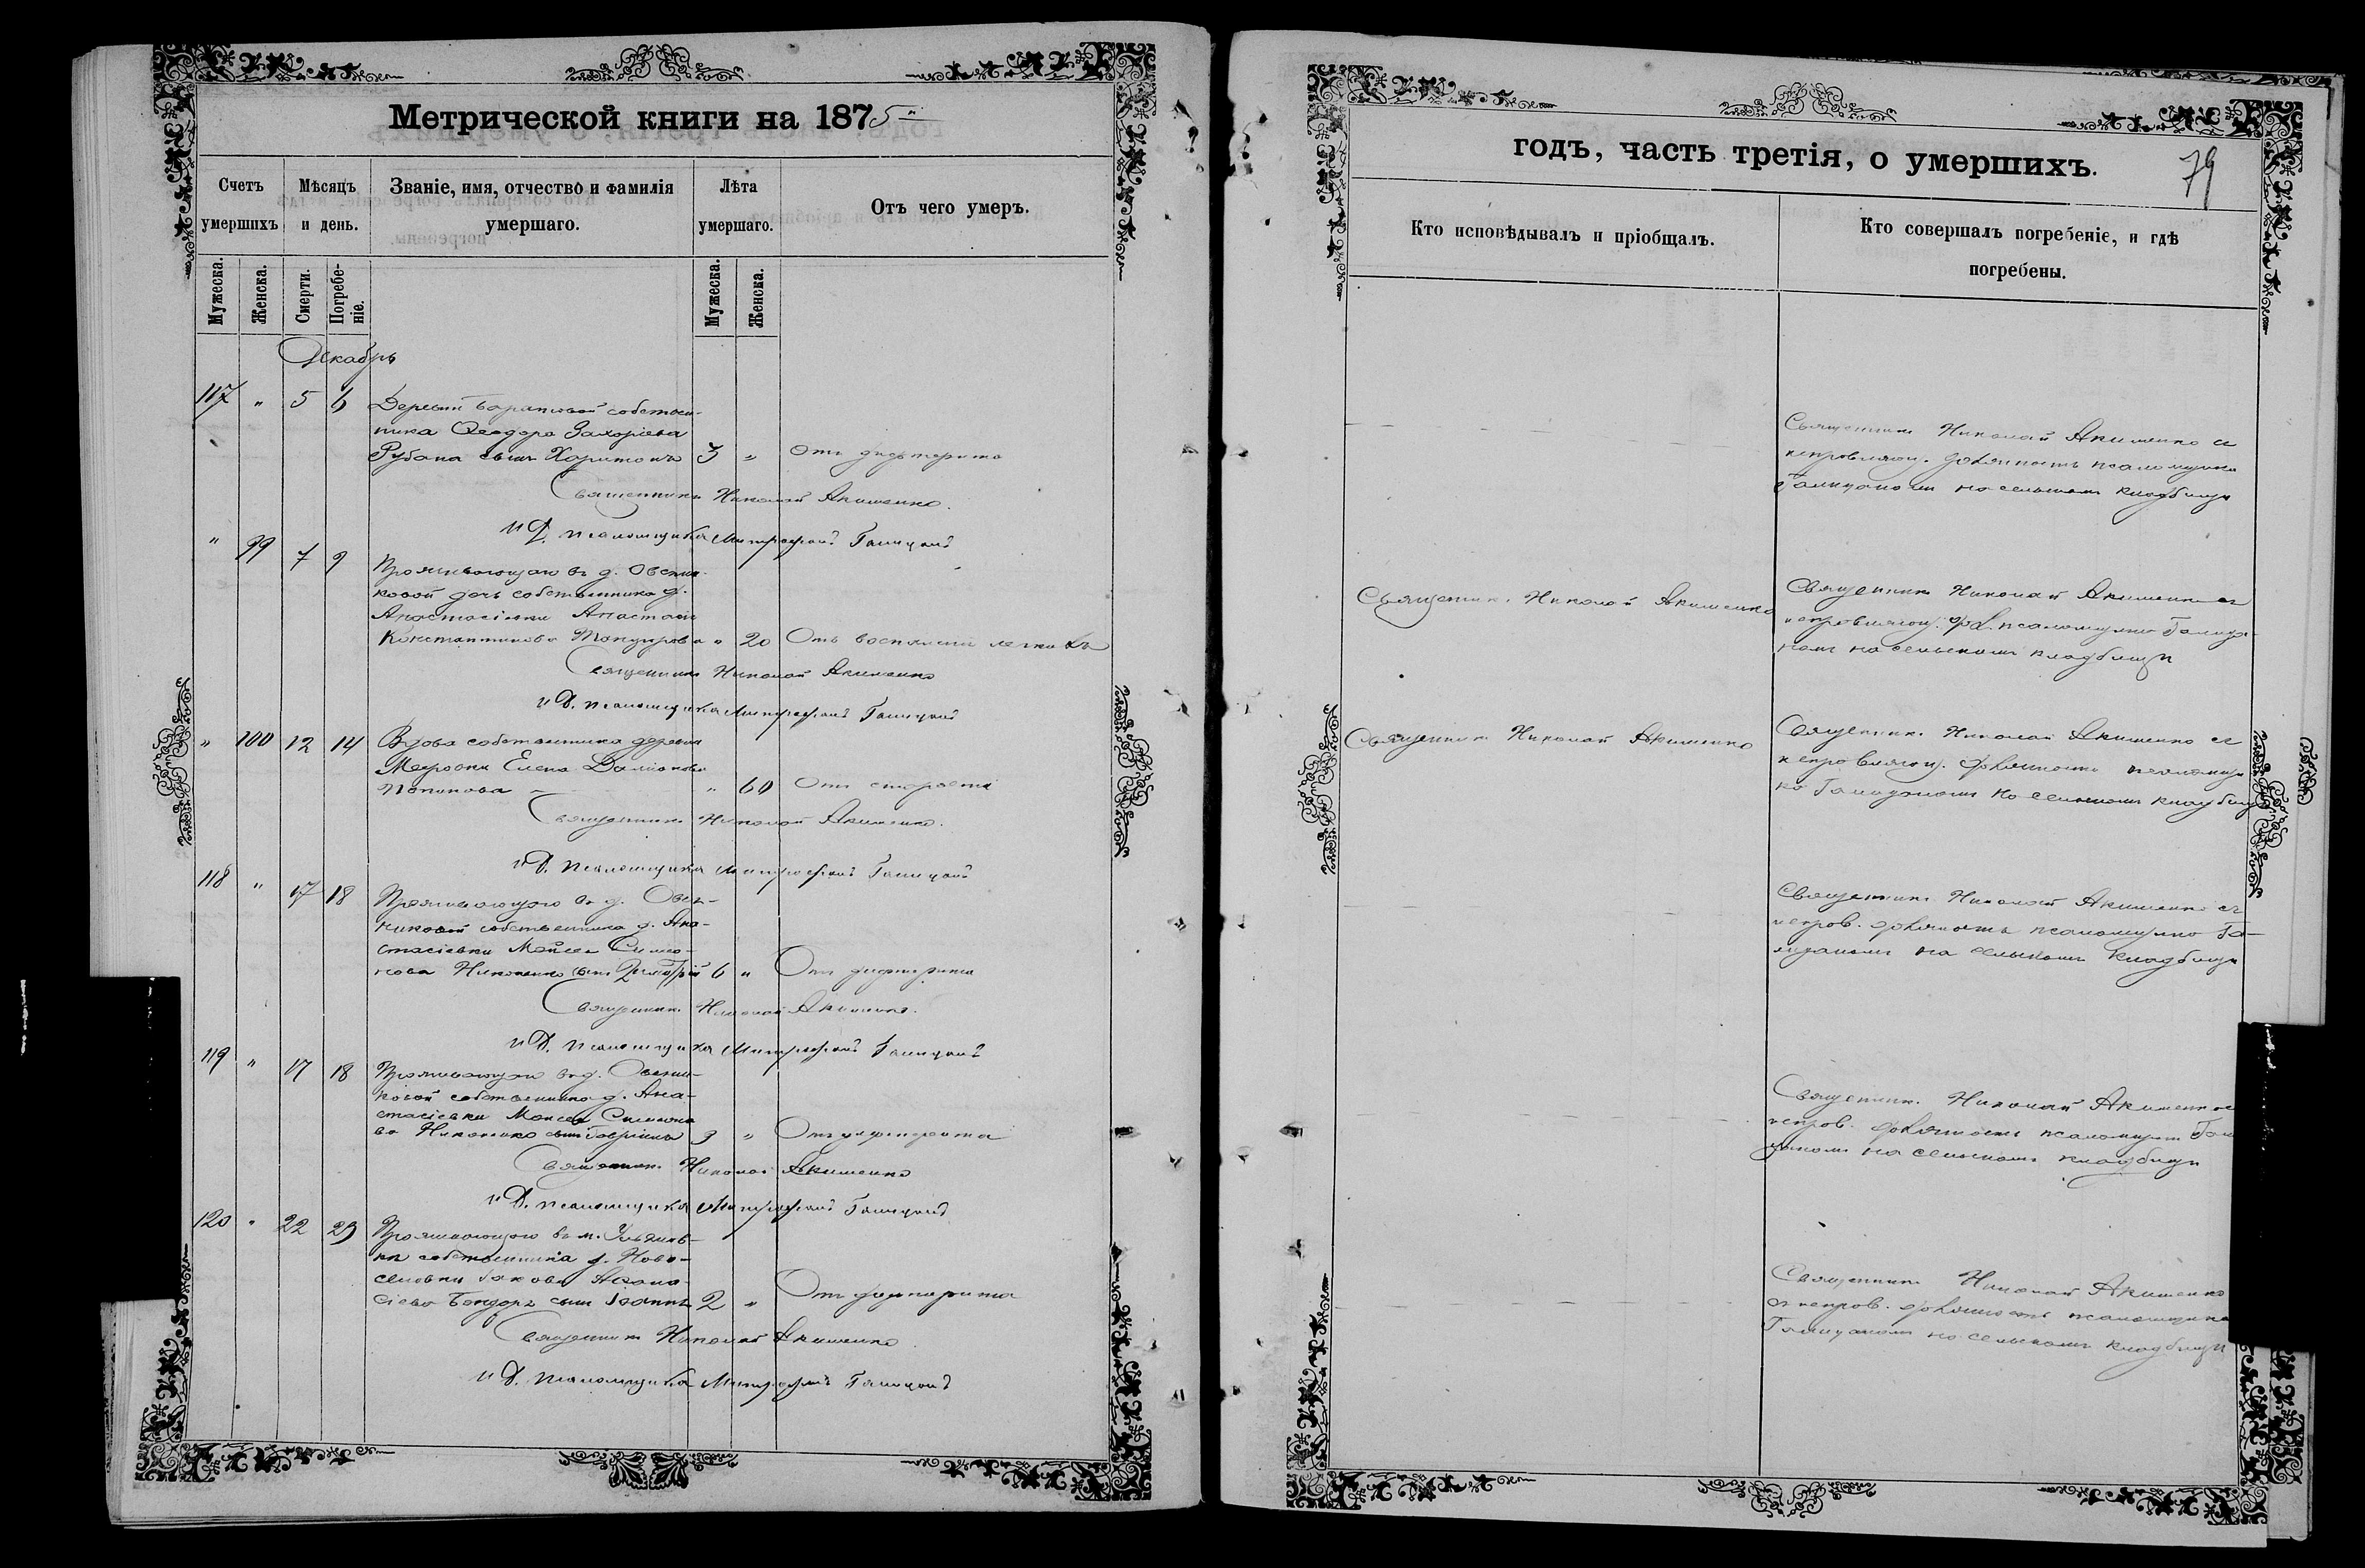 Метрической книги на 1875й
Счетъ умершихъ
Мѣсяцъ и день.
Званіе, имя, отчество и фамилія умершаго.
Лѣта умершаго.
Отъ чего умеръ.
Мужеска.
Женска.
Смерти.
Погребе-
ніе.
Мужеска.
Женска.
Декабрь
117 " 5 6 Деревни собствен-
ника Ѳеодора Захаріева
Рубана сынъ Харитонъ 3 " Отъ дифтерита
Священникъ Николай Акименко.
И Д. псаломщика Митрофанъ Галицанъ
" 99 7 9 Проживающаго въ д. Овсян-
ковой дочь собственника д.
Анастасіевки Анастасія
Константинова " 20 Отъ воспаленія легкихъ
Священникъ Николай Акименко
И Д. псаломщика Митрофанъ Галицанъ
" 100 12 14 Вдова собственника деревни
Елена Даміанова
" 60 Отъ старости
Священникъ Николай Акименко.
И Д. псаломщика Митрофанъ Галицанъ
118 " 17 18 Проживающаго въ д. Овсян-
никовой собственника д. Ана-
стасіевки Моѵсея Симео-
нова Никоненко сынъ Димитрій 6 " Отъ дифтерита
Священникъ Николай Акименко.
И Д. псаломщика Митрофанъ Галицанъ
119 " 17 18 Проживающаго въ д. Овсянни-
ковой собственника д. Ана-
стасіевки Моисея Симеоно
ва Никоненко сынъ Гавріилъ 3 " Отъ дифтерита
Священникъ Николай Акименко
И Д. псаломщика Митрофанъ Галицанъ
120 " 22 23 Проживающаго въ м.
собственника д. Ново-
селовки Іакова Аѳана-
сіева Бондаръ сынъ Іоаннъ 2 " Отъ дифтерита
Священникъ Николай Акименко
И Д. псаломщика Митрофанъ Галицанъ
годъ, часть третія, о умершихъ.
79
Кто исповѣдывалъ и пріобщалъ.
Кто совершалъ погребеніе, и гдѣ
погребены.
Священникъ Николай Акименко съ
исправляющ. должность псаломщика
Галицаномъ на сельскомъ кладбищѣ
Священникъ Николай Акименко
Священникъ Николай Акименко съ
исправляющ. дол. псаломщика Галица-
номъ на сельскомъ кладбищѣ
Священникъ Николай Акименко
Священникъ Николай Акименко съ
исправляющ. должность псаломщи
ка Галицаномъ на сельскомъ кладбищѣ
Священникъ Николай Акименко съ
исправ. должность псаломщика Га-
лицаномъ на сельскомъ кладбищѣ
Священникъ Николай Акименко съ
исправ. должность псаломщика Гали
цаномъ на сельскомъ кладбищѣ
Священникъ Николай Акименко
съ исправ. должность псаломщика
Галицаномъ на сельскомъ кладбищѣ